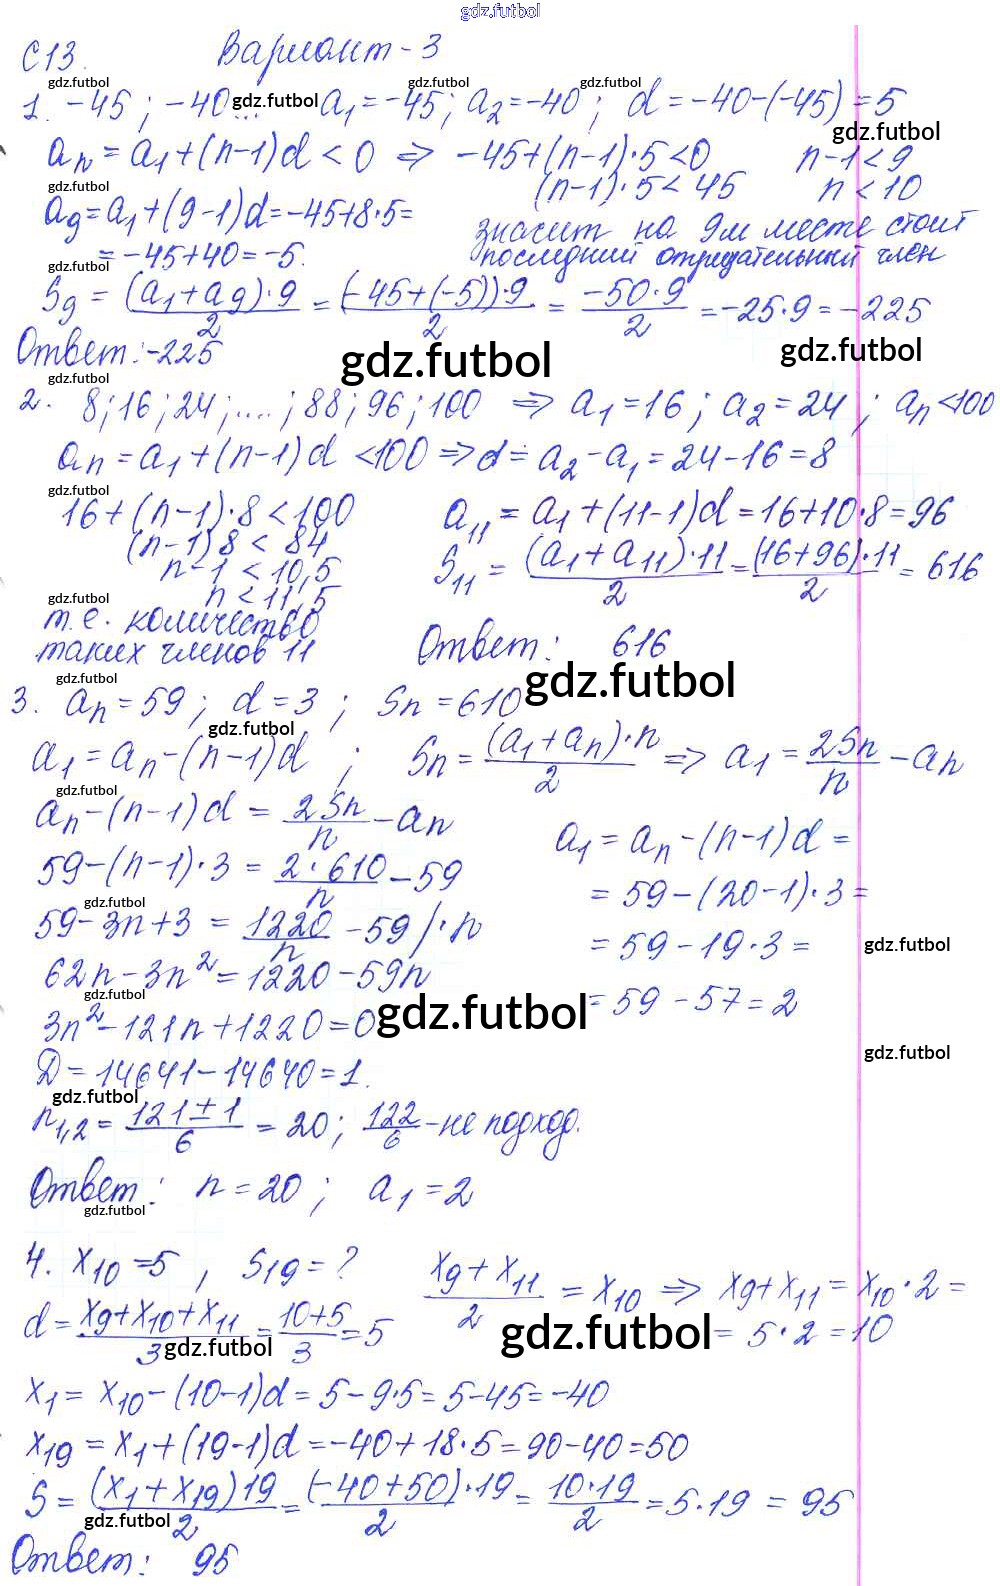 gdz.futbol
С13. Вариант-3
gdz.futbol gdz.futbol
1. -45; -40 ... a₁=-45; a₂=-40; d=-40-(-45)=5
gdz.futbol gdz.futbol
aₙ=a₁+(n-1)d<0 ⇒ -45+(n-1)·5<0 n-1<9
(n-1)·5<45 n<10
gdz.futbol
a₉=a₁+(9-1)d=-45+8·5= значит на 9м месте стоит
=-45+40=-5. последний отрицательный член
gdz.futbol
S₉ = (a₁+a₉)·9/2 = (-45+(-5))·9/2 = -50·9/2 =-25·9=-225
Ответ: -225
gdz.futbol gdz.futbol
gdz.futbol
2. 8; 16; 24; ....; 88; 96; 100 ⇒ a₁=16; a₂=24; aₙ<100
aₙ=a₁+(n-1)d<100 ⇒ d= a₂-a₁=24-16=8
gdz.futbol
16+(n-1)·8<100 a₁₁=a₁+(11-1)d=16+10·8=96
(n-1)8<84
n-1<10,5 S₁₁ = (a₁+a₁₁)·11/2 = (16+96)·11/2 = 616
n<11,5
gdz.futbol
т.е. количество
таких членов 11 Ответ: 616
gdz.futbol gdz.futbol
3. aₙ=59; d=3; Sₙ=610
gdz.futbol
a₁=aₙ-(n-1)d; Sₙ=(a₁+aₙ)·n/2 ⇒ a₁=2Sₙ/n-aₙ
gdz.futbol
aₙ-(n-1)d = 2Sₙ/n-aₙ a₁=aₙ-(n-1)d=
59-(n-1)·3 = 2·610/n-59 =59-(20-1)·3=
gdz.futbol
59-3n+3 = 1220/n-59 /·n =59-19·3=
gdz.futbol
62n-3n²=1220-59n =59-57=2
gdz.futbol
3n²-121n+1220=0
gdz.futbol gdz.futbol
Д=14641-14640=1.
gdz.futbol
n₁,₂=121±1/6 = 20; 122/6-не подход.
Ответ: n=20; a₁=2
gdz.futbol
4. x₁₀=5, S₁₉=? x₉+x₁₁/2 = x₁₀ ⇒ x₉+x₁₁=x₁₀·2=
d=x₉+x₁₀+x₁₁/3=10+5/3=5 = 5·2=10
gdz.futbol gdz.futbol
x₁=x₁₀-(10-1)d=5-9·5=5-45=-40
x₁₉=x₁+(19-1)d=-40+18·5=90-40=50
S=(x₁+x₁₉)19/2=(-40+50)·19/2=10·19/2=5·19=95
gdz.futbol
Ответ: 95